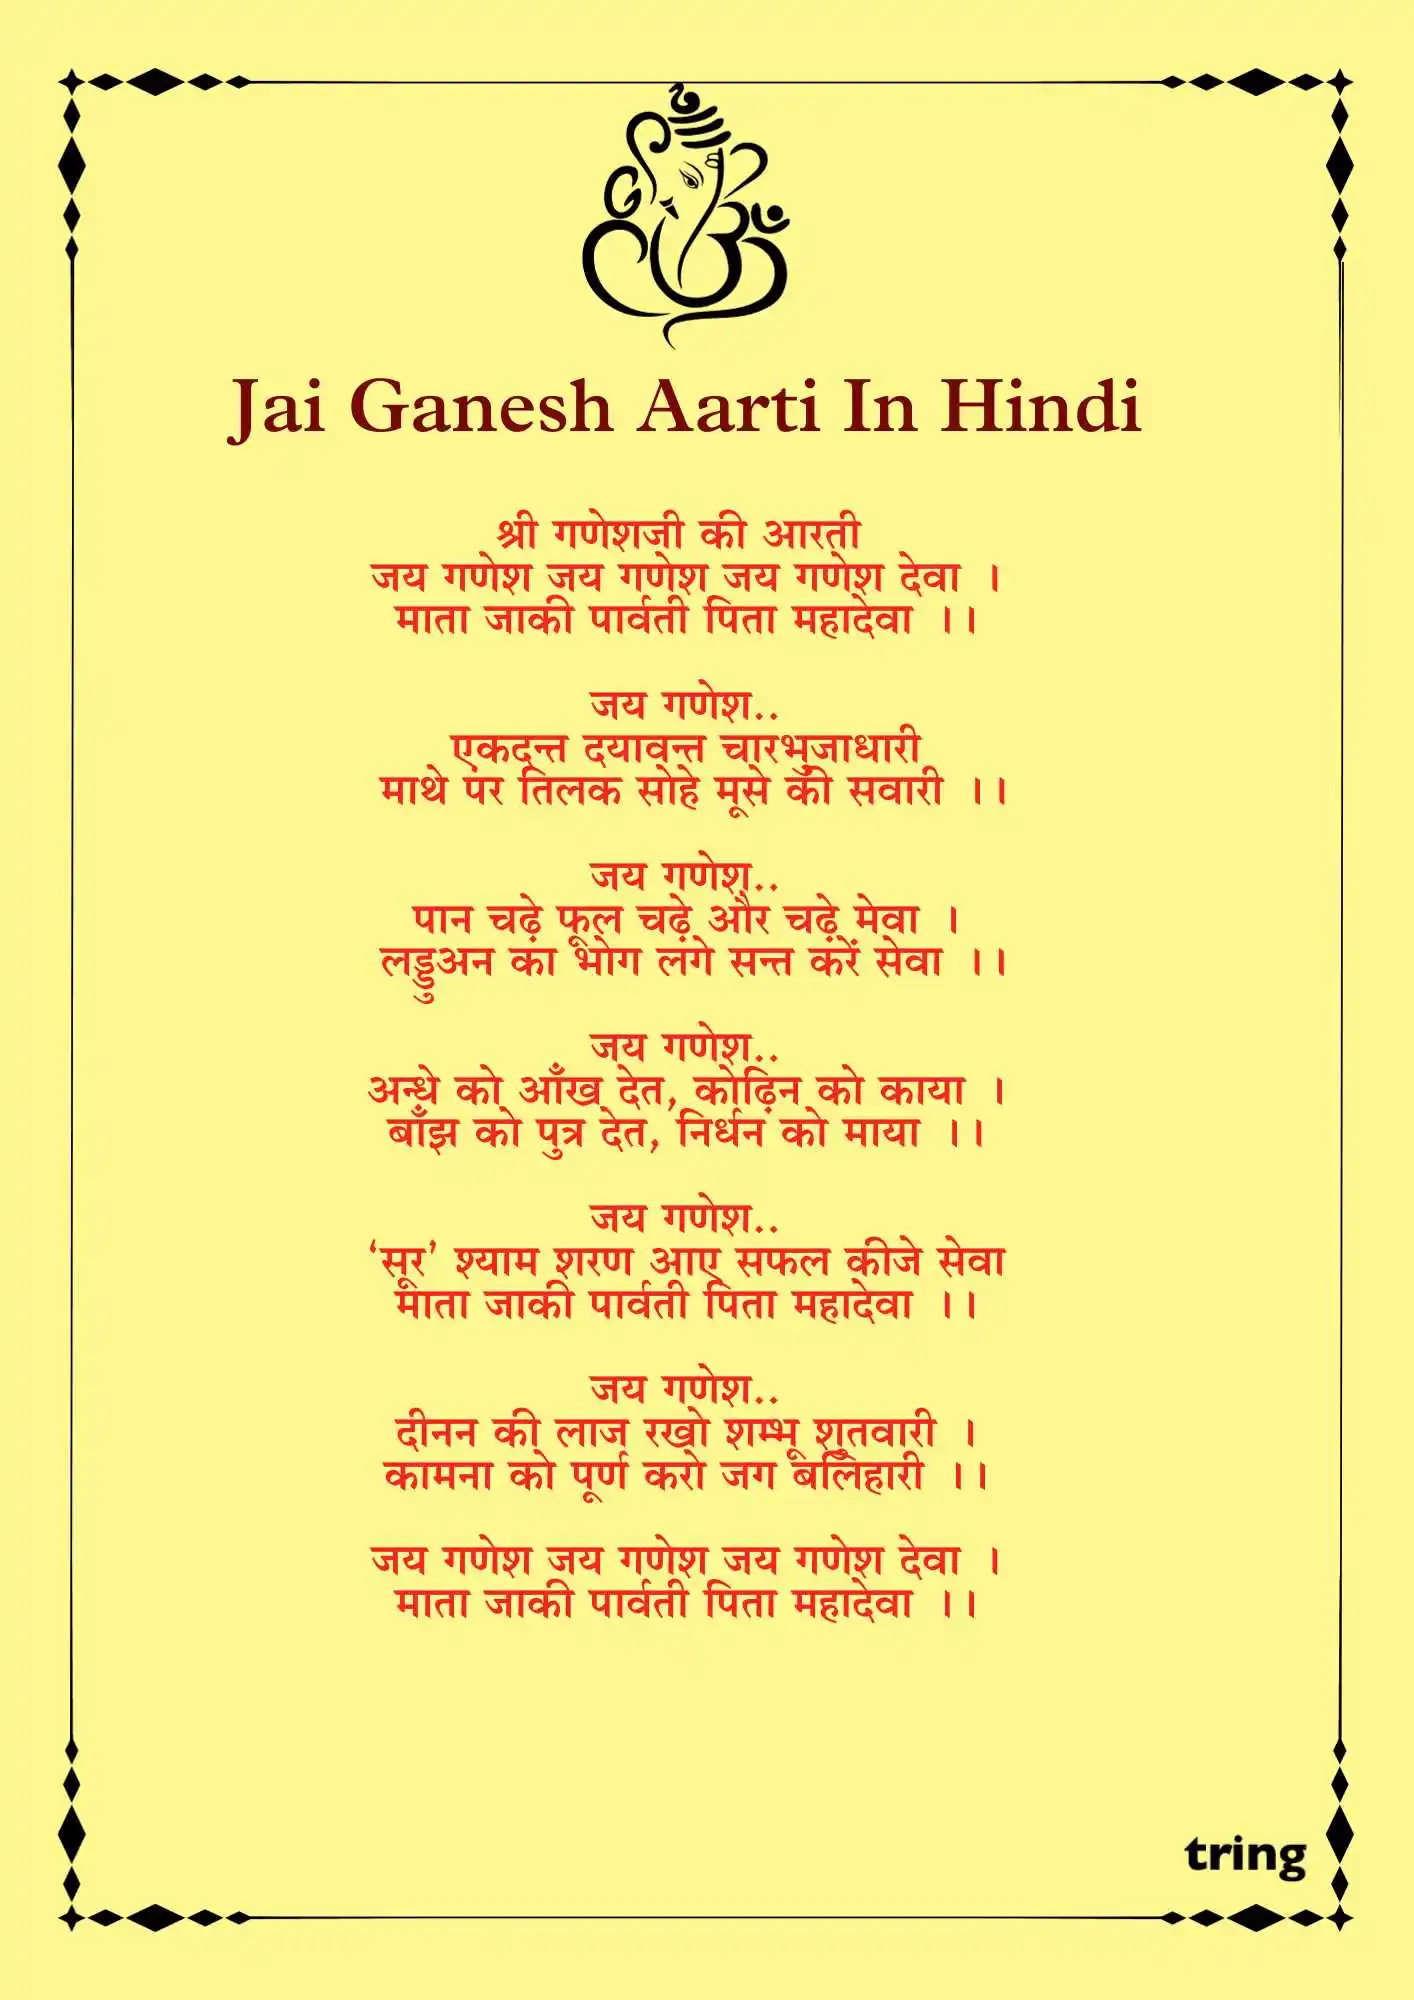 Jai Ganesh Aarti In Hindi
श्री गणेशजी की आरती
जय गणेश जय गणेश जय गणेश देवा ।
माता जाकी पार्वती पिता महादेवा ।।
जय गणेश..
एकदन्त दयावन्त चारभुजाधारी
माथे पर तिलक सोहे मूसे की सवारी ।।
जय गणेश..
पान चढ़े फूल चढ़े और चढ़े मेवा ।
लड्डुअन का भोग लगे सन्त करें सेवा ।।
जय गणेश..
अन्धे को आँख देत, कोढ़िन को काया ।
बाँझ को पुत्र देत, निर्धन को माया ।।
जय गणेश..
‘सूर’ श्याम शरण आए सफल कीजे सेवा
माता जाकी पार्वती पिता महादेवा ।।
जय गणेश..
दीनन की लाज रखो शम्भू शुतवारी ।
कामना को पूर्ण करो जग बलिहारी ।।
जय गणेश जय गणेश जय गणेश देवा ।
माता जाकी पार्वती पिता महादेवा ।।
tring